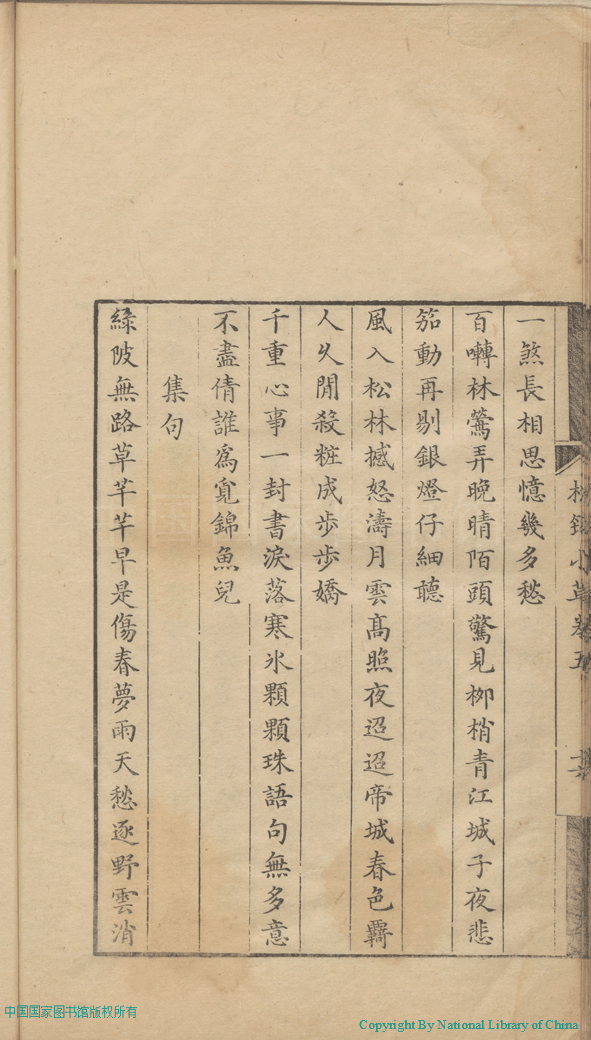 一煞長相思憶幾多愁
百囀林鶯弄晚晴陌頭驚見柳梢青江城子夜悲
笳動再剔銀燈仔細聽
風入松林撼怒濤月雲高照夜迢迢帝城春色羈
人久閒殺粧成步步嬌
千重心事一封書淚落寒氷顆顆珠語句無多意
不盡倩誰爲寛錦魚兒
集句
綠陂無路草芊芊早是傷春夢雨天愁逐野雲消
小草卷五
中国国家图书馆版权所有
Copyright By National Library of China